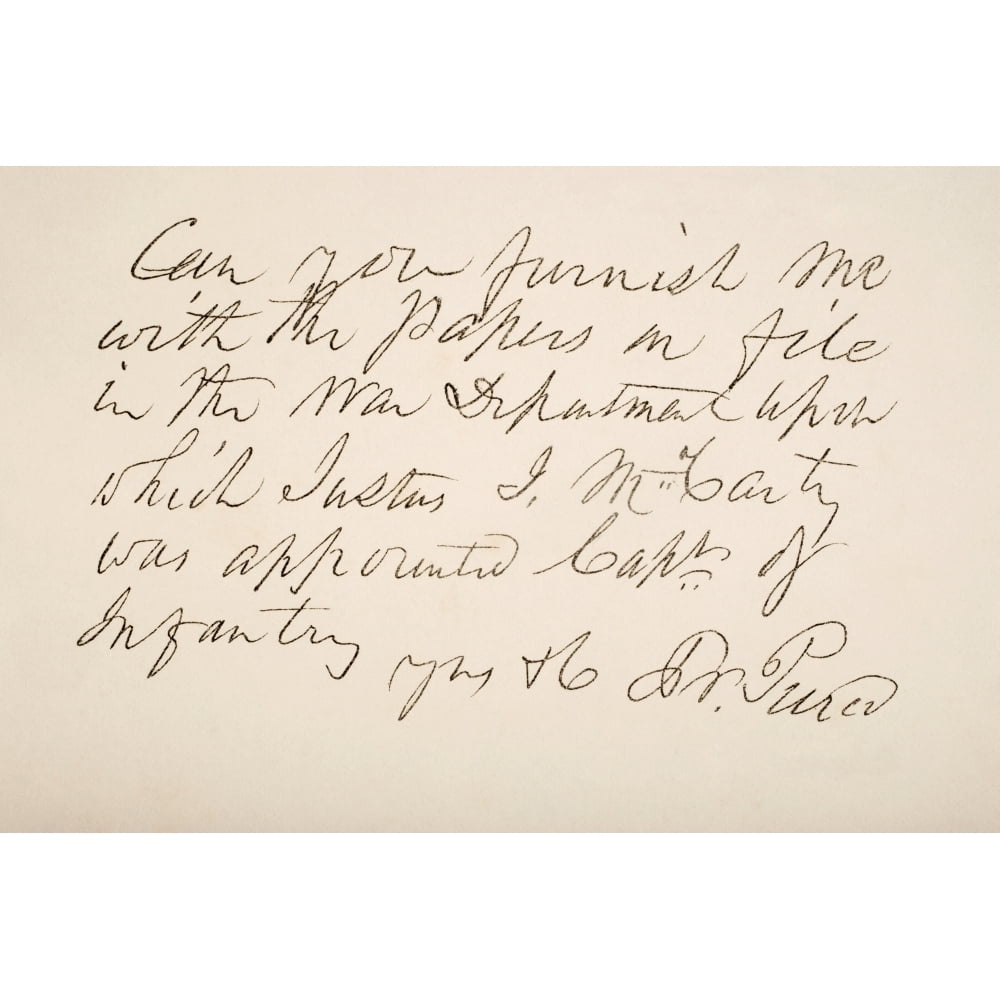 Can you furnish me
with the papers on file
in the War Department upon
which Justus I. McCarty
was appointed Capt. of
Infantry
yrs &c Fr. Pierce